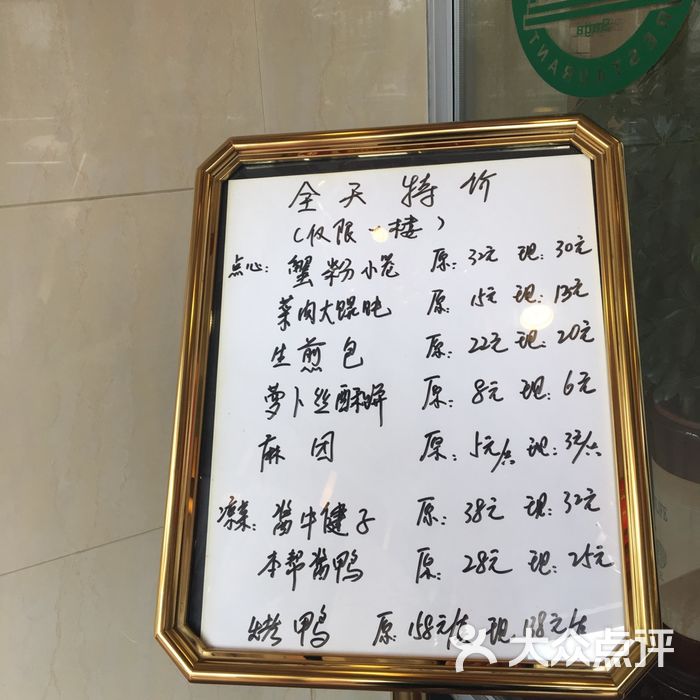 RESTAURANT
全天特价
(仅限一楼)
点心: 蟹粉小卷 原: 32元 现: 30元
菜肉大馄吨 原: 15元 现: 13元
生煎包 原: 22元 现: 20元
萝卜丝酥饼 原: 8元 现: 6元
麻团 原: 5元/点 现: 3元/点
凉菜: 酱牛健子 原: 38元 现: 32元
本帮酱鸭 原: 28元 现: 25元
烤鸭 原: 158元/只 现: 138元/只
大众点评